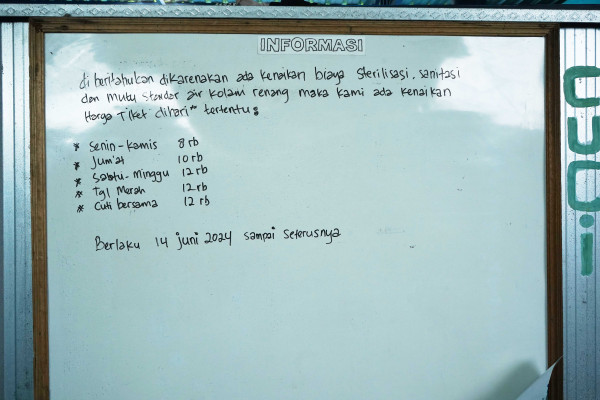 INFORMASI
di beritahukan dikarenakan ada kenaikan biaya sterilisasi, sanitasi
dan mutu standar air kolam renang maka kami ada kenaikan
Harga Tiket dihari" tertentu:
* Senin - Kamis 8 rb
* Jum'at 10 rb
* Sabtu - Minggu 12 rb
* Tgl Merah 12 rb
* Cuti bersama 12 rb
Berlaku 14 juni 2024 sampai seterusnya